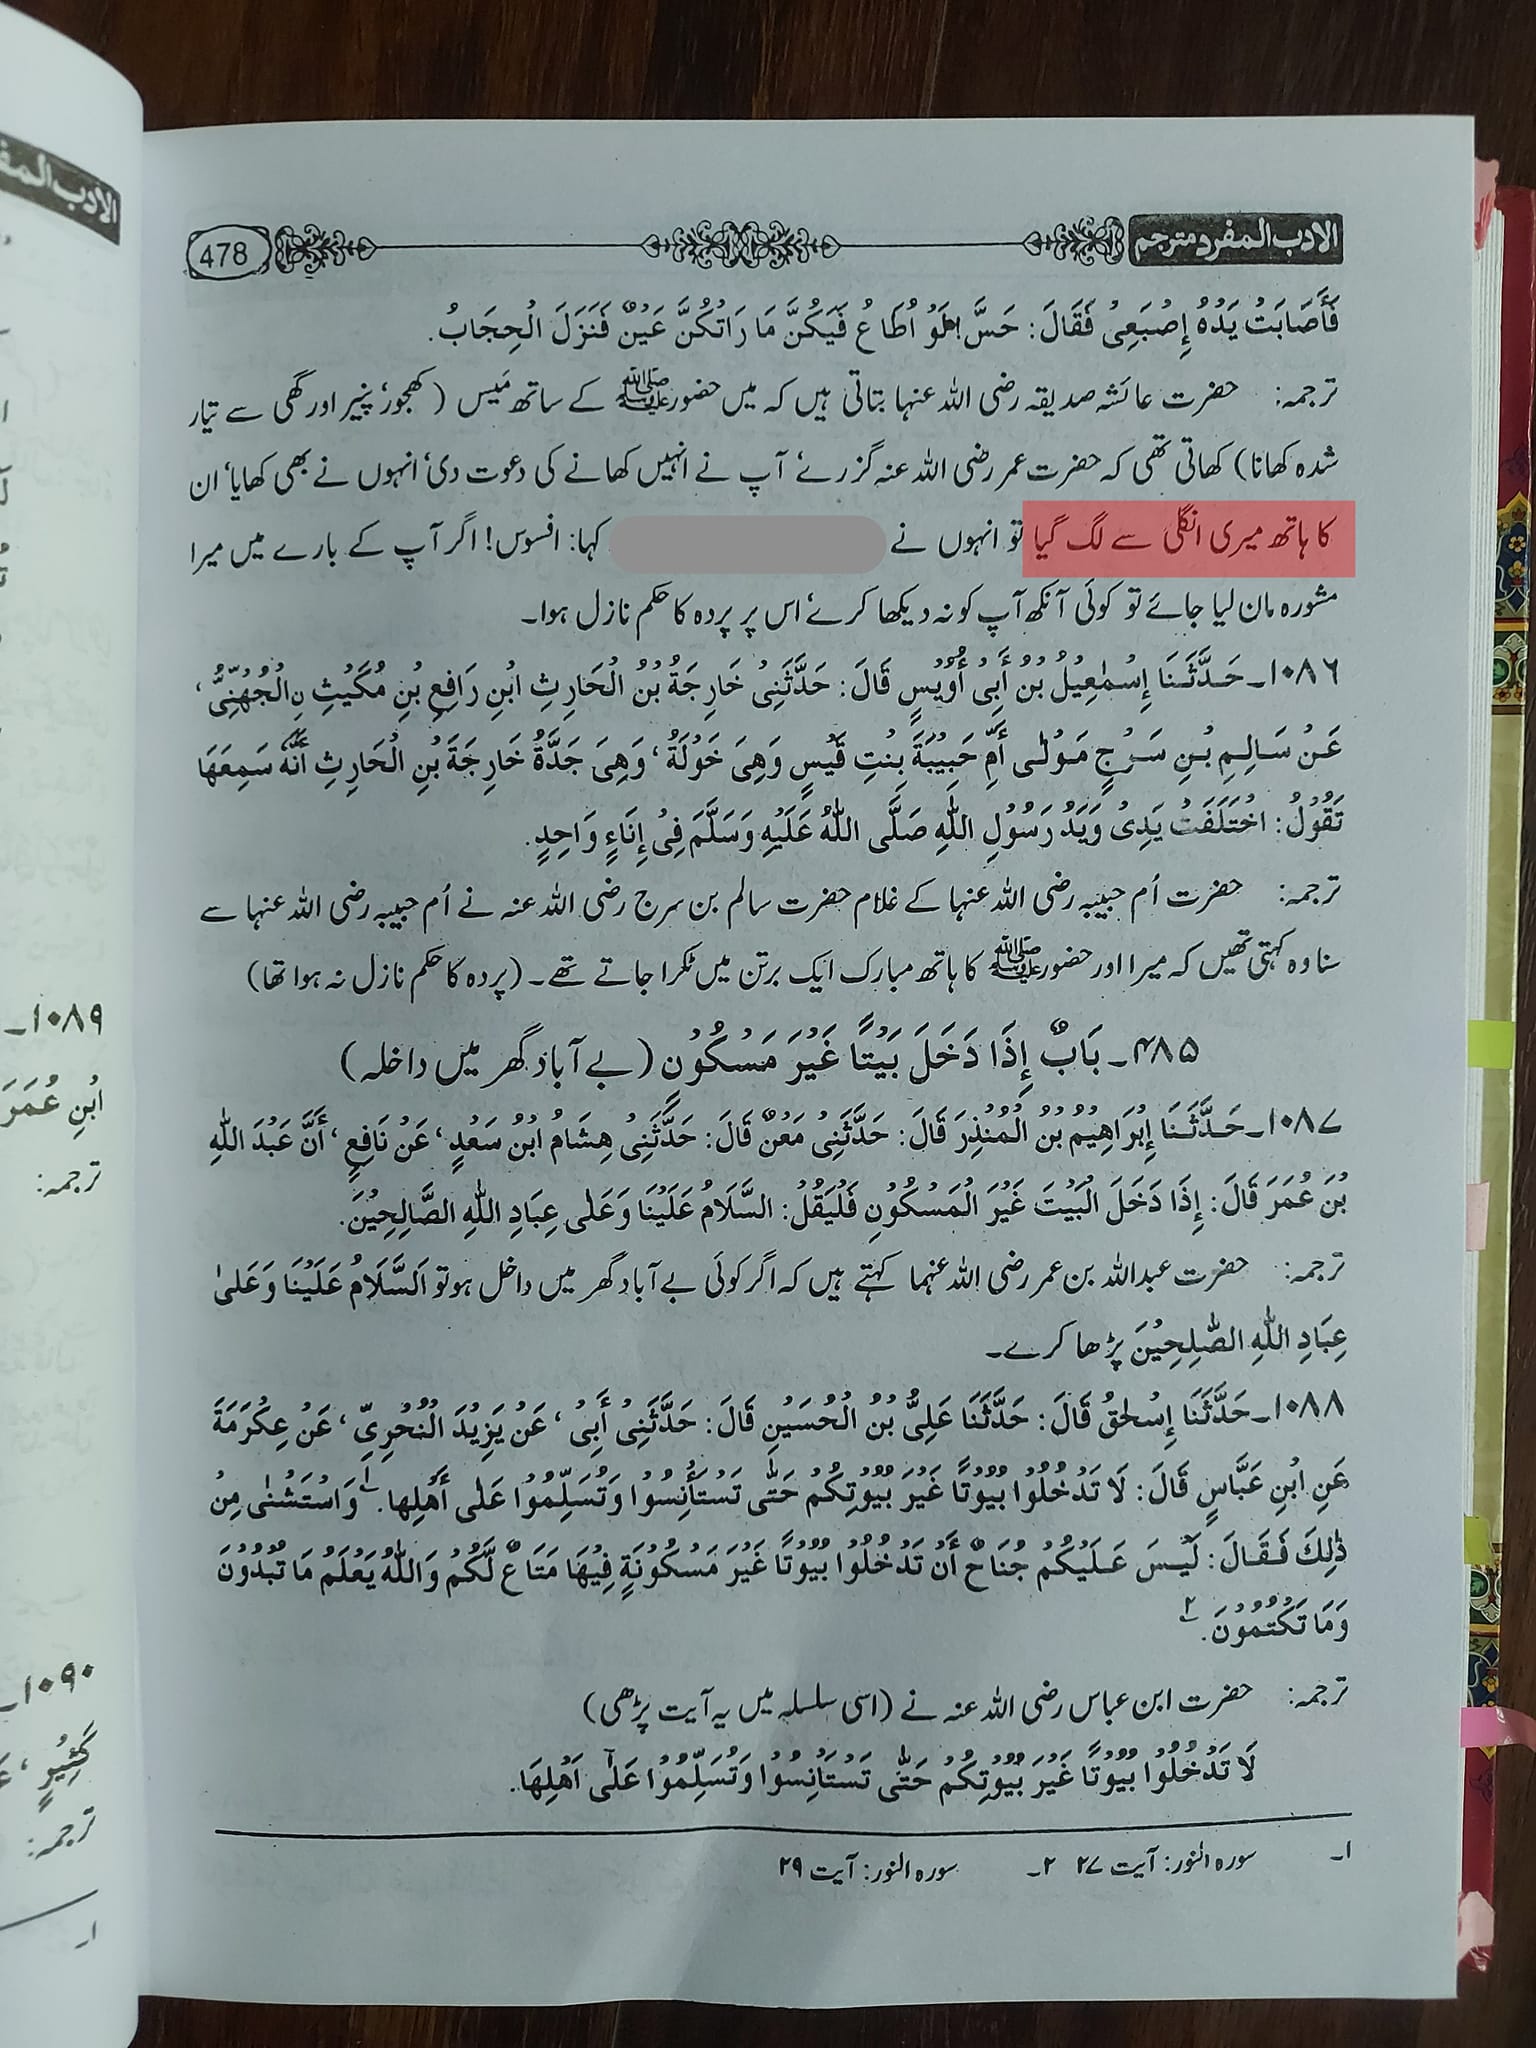 الادب المفرد مترجم
478
فَأَصَابَتْ يَدُهُ إِصْبَعِىْ فَقَالَ: حَسَّ! لَوْ اُطَاعُ فَيَكُنَّ مَا رَاَتْكُنَّ عَيْنٌ فَنَزَلَ الْحِجَابُ.
ترجمہ: حضرت عائشہ صدیقہ رضی اللہ عنہا بتاتی ہیں کہ میں حضور ﷺ کے ساتھ حَیس (کھجور، پنیر اور گھی سے تیار
شدہ کھانا) کھاتی تھی کہ حضرت عمر رضی اللہ عنہ گزرے، آپ نے انہیں کھانے کی دعوت دی، انہوں نے بھی کھایا، ان
کا ہاتھ میری انگلی سے لگ گیا تو انہوں نے کہا: افسوس! اگر آپ کے بارے میں میرا
مشورہ مان لیا جائے تو کوئی آنکھ آپ کو نہ دیکھا کرے، اس پر پردہ کا حکم نازل ہوا۔
۱۰۸۶۔ حَدَّثَنَا إِسْمٰعِيْلُ بْنُ أَبِىْ أُوَيْسٍ قَالَ: حَدَّثَنِىْ خَارِجَةُ بْنُ الْحَارِثِ ابْنِ رَافِعِ بْنِ مُكَيْثِ نِ الْجُهْنِىُّ،
عَنْ سَالِمِ بْنِ سَرْجٍ مَوْلٰى أُمِّ حَبِيْبَةَ بِنْتِ قَيْسٍ وَهِىَ خَوْلَةُ، وَهِىَ جَدَّةُ خَارِجَةَ بْنِ الْحَارِثِ أَنَّهٗ سَمِعَهَا
تَقُوْلُ: اخْتَلَفَتْ يَدِىْ وَيَدُ رَسُوْلِ اللّٰهِ صَلَّى اللّٰهُ عَلَيْهِ وَسَلَّمَ فِىْ إِنَاءٍ وَاحِدٍ.
ترجمہ: حضرت اُم حبیبہ رضی اللہ عنہا کے غلام حضرت سالم بن سرج رضی اللہ عنہ نے اُم حبیبہ رضی اللہ عنہا سے
سنا وہ کہتی تھیں کہ میرا اور حضور ﷺ کا ہاتھ مبارک ایک برتن میں ٹکرا جاتے تھے۔ (پردہ کا حکم نازل نہ ہوا تھا)
۴۸۵۔ بَابٌ إِذَا دَخَلَ بَيْتًا غَيْرَ مَسْكُوْنٍ (بے آباد گھر میں داخلہ)
۱۰۸۷۔ حَدَّثَنَا إِبْرَاهِيْمُ بْنُ الْمُنْذِرَ قَالَ: حَدَّثَنِىْ مَعْنٌ قَالَ: حَدَّثَنِىْ هِشَامُ ابْنُ سَعْدٍ، عَنْ نَافِعٍ، أَنَّ عَبْدَ اللّٰهِ
بْنَ عُمَرَ قَالَ: إِذَا دَخَلَ الْبَيْتَ غَيْرَ الْمَسْكُوْنِ فَلْيَقُلْ: السَّلَامُ عَلَيْنَا وَعَلٰى عِبَادِ اللّٰهِ الصَّالِحِيْنَ.
ترجمہ: حضرت عبداللہ بن عمر رضی اللہ عنہما کہتے ہیں کہ اگر کوئی بے آباد گھر میں داخل ہو تو اَلسَّلَامُ عَلَيْنَا وَعَلىٰ
عِبَادِ اللّٰهِ الصّٰلِحِيْنَ پڑھا کرے۔
۱۰۸۸۔ حَدَّثَنَا إِسْحٰقُ قَالَ: حَدَّثَنَا عَلِىُّ بْنُ الْحُسَيْنِ قَالَ: حَدَّثَنِىْ أَبِىْ، عَنْ يَزِيْدَ النُّحْرِىِّ، عَنْ عِكْرَمَةَ
عَنِ ابْنِ عَبَّاسٍ قَالَ: لَا تَدْخُلُوْا بُيُوْتًا غَيْرَ بُيُوْتِكُمْ حَتّٰى تَسْتَأْنِسُوْا وَتُسَلِّمُوْا عَلٰى أَهْلِها. ۱ وَاسْتَثْنٰى مِنْ
ذٰلِكَ فَقَالَ: لَيْسَ عَلَيْكُمْ جُنَاحٌ أَنْ تَدْخُلُوْا بُيُوْتًا غَيْرَ مَسْكُوْنَةٍ فِيْهَا مَتَاعٌ لَّكُمْ وَاللّٰهُ يَعْلَمُ مَا تُبْدُوْنَ
وَمَا تَكْتُمُوْنَ. ۲
ترجمہ: حضرت ابن عباس رضی اللہ عنہ نے (اسی سلسلہ میں یہ آیت پڑھی)
لَا تَدْخُلُوْا بُيُوْتًا غَيْرَ بُيُوْتِكُمْ حَتّٰى تَسْتَاْنِسُوْا وَتُسَلِّمُوْا عَلٰٓى اَهْلِهَا.
۱۔ سورہ النور: آیت ۲۷ ۲۔ سورہ النور: آیت ۲۹
الادب المف
۱۰۸۹۔
ابْنِ عُمَرَ
ترجمہ:
۱۰۹۰۔
كَثِيْرٍ،
ترجمہ:
۱۔